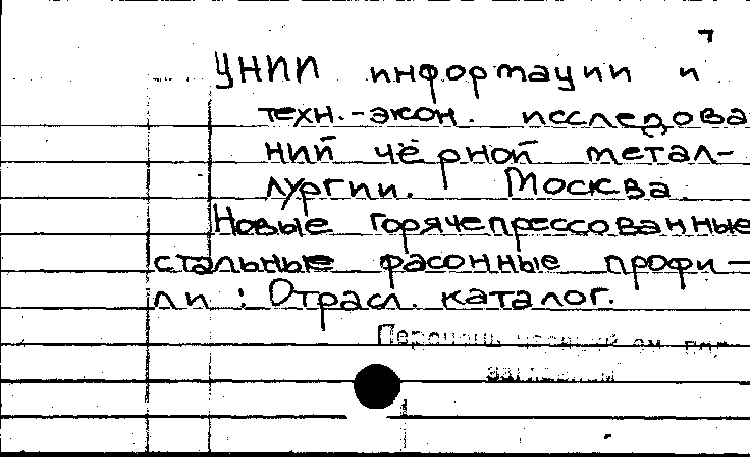 7
ЦНИИ информации и
техн.-экон. исследова
ний чёрной метал-
лургии. Москва.
Новые горячепрессованные
стальные фасонные профи-
ли : Отрасл. каталог.
Перечень изданий см. под
заглавием